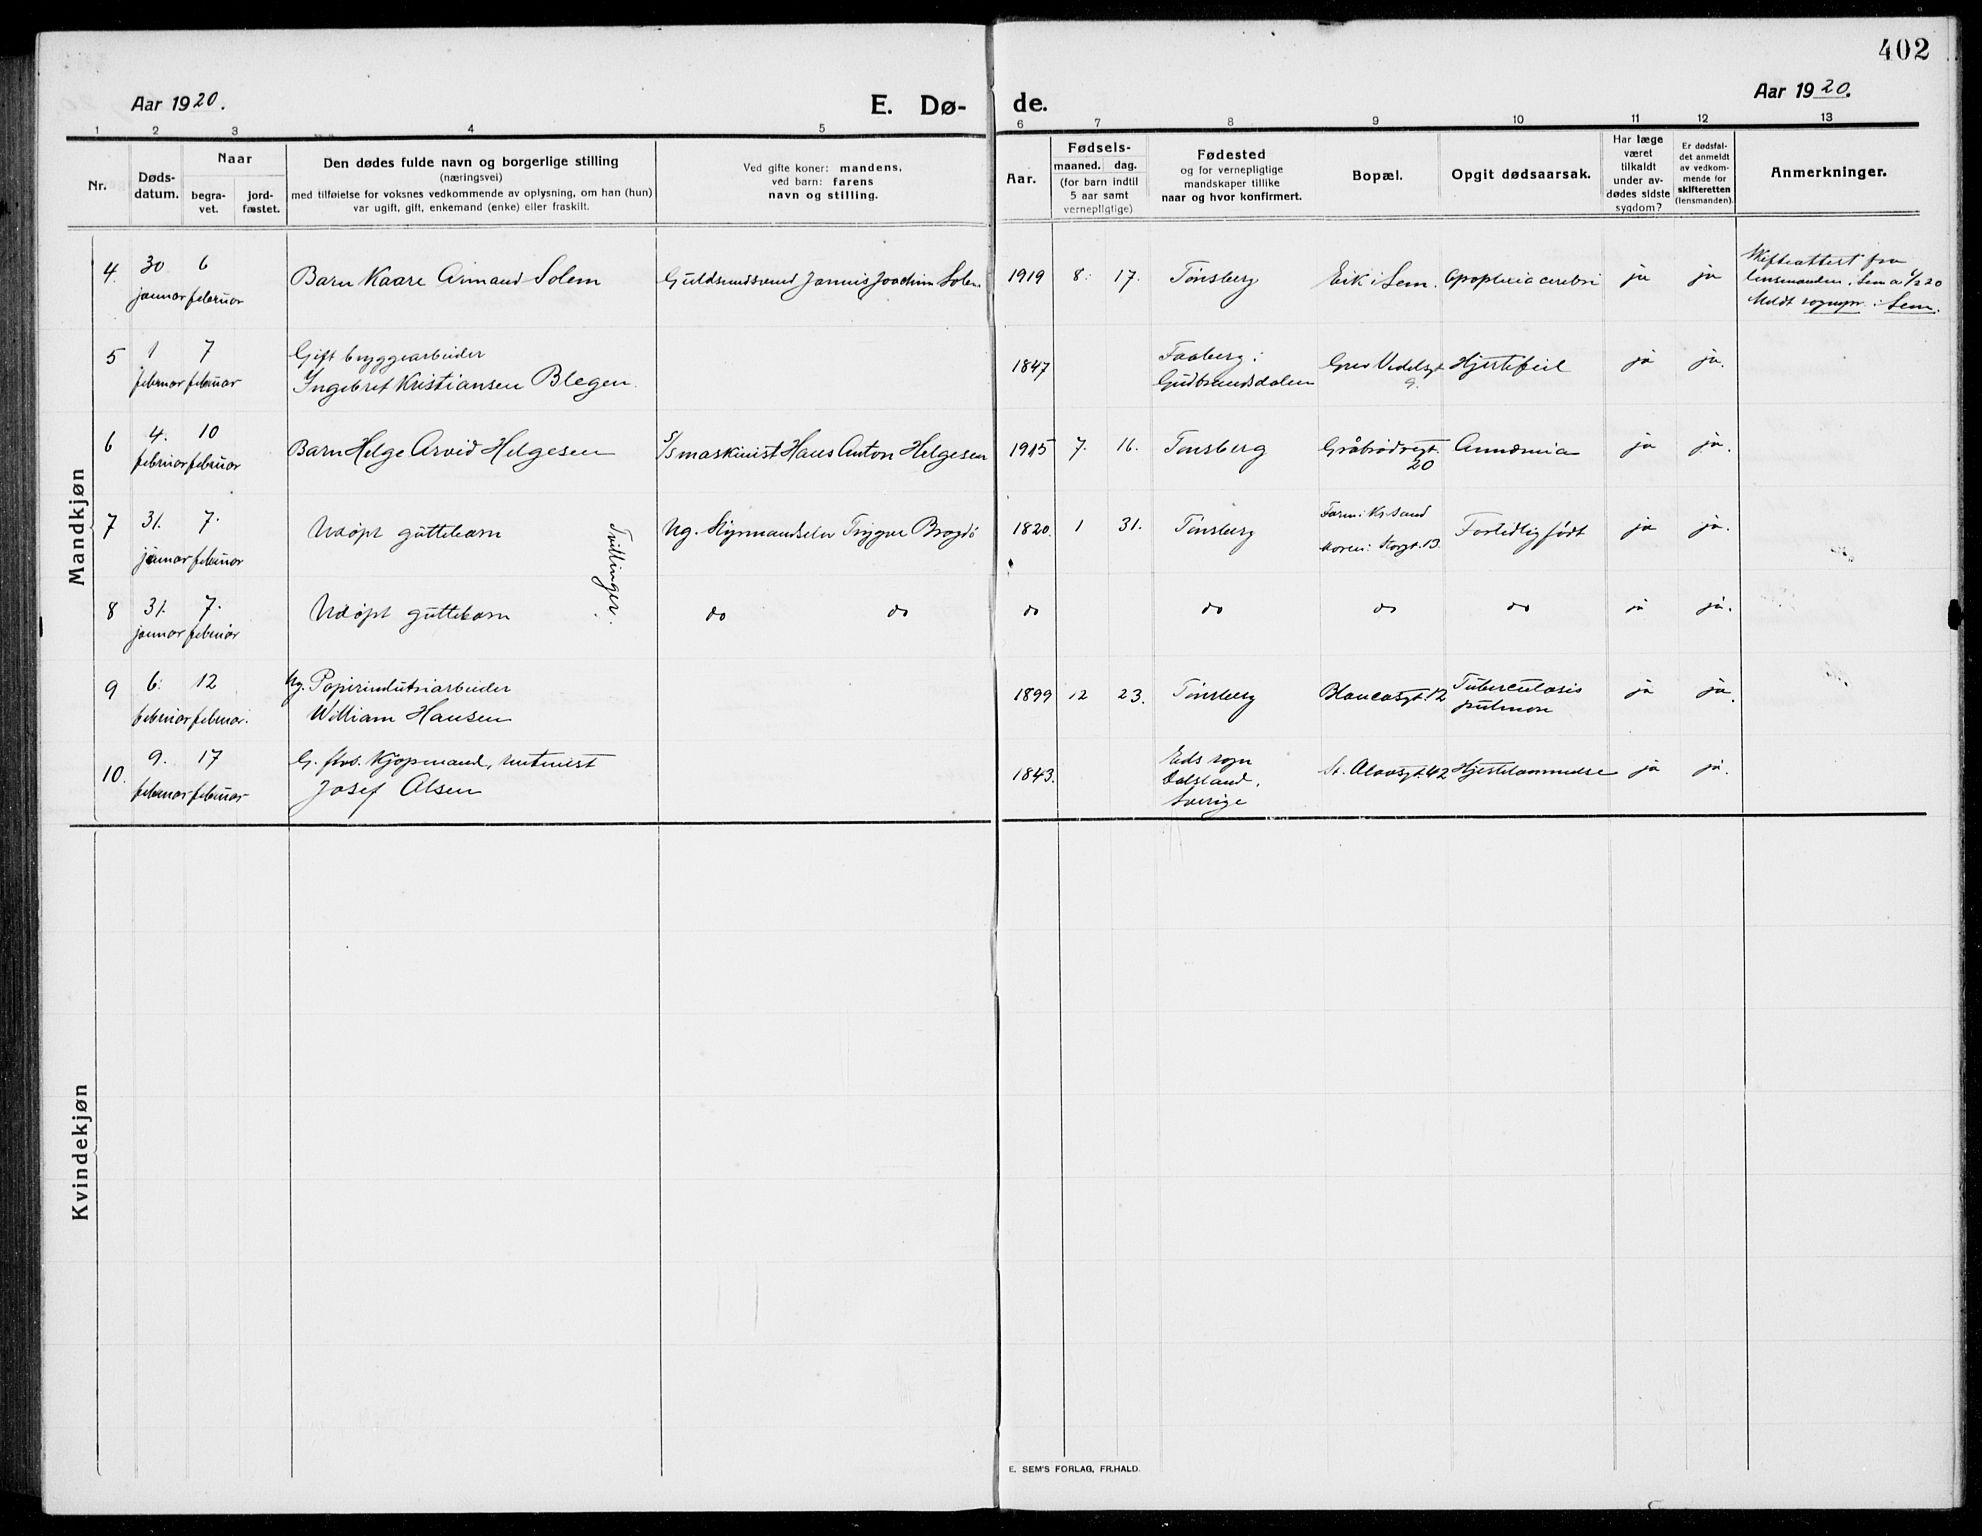 402
Aar 1920.
E. Dø- de.
Aar 1920.
1 2 3 4 5 6 7 8 9 10 11 12 13
Nr.
Døds-
datum.
Naar
begra-
vet.
jord-
fæstet.
Den dødes fulde navn og borgerlige stilling
(næringsvei)
med tilføielse for voksnes vedkommende av oplysning, om han (hun)
var ugift, gift, enkemand (enke) eller fraskilt.
Ved gifte koner: mandens,
ved barn: farens
navn og stilling.
Aar.
Fødsels-
maaned. dag.
(for barn indtil
5 aar samt
vernepligtige)
Fødested
og for vernepligtige
mandskaper tillike
naar og hvor konfirmert.
Bopæl.
Opgit dødsaarsak.
Har læge
været
tilkaldt
under av-
dødes sidste
sygdom?
Er dødsfal-
det anmeldt
av vedkom-
mende for
skifteretten
(lensmanden).
Anmerkninger.
Mandkjøn
4 30 januar 6 februar
Barn Kaare Armand Solem
Guldsmedsvend Jannis Joachim Solem
1919 8. 17. Tønsberg
Eik i Sem. Apoplexia cerebri ja ja
Skifteattest fra
lensmanden i Sem
Meldt sognepr. i Sem.
5 1 februar 7 februar
Gift bryggearbeider
Ingebret Kristiansen Blegen.
1847
Faaberg i
Gudbrandsdalen
Grev Wedelsgt
9.
Hjertefeil ja ja.
6 4. februar 10 februar
Barn Helge Arvid Helgesen
S/S maskinist Hans Anton Helgesen
1915 7. 16. Tønsberg
Gråbrødregt.
20
Annæmia ja ja.
7 31. januar 7. februar
Udøpt guttebarn
Tvillinger.
Ug. Styrmandselev Trygve Brogdø
1820. 1 31. Tønsberg
Faren: Kr.sand
Moren: Storgt. 13
Fortidlig født ja ja.
8 31. januar 7. februar
Udøpt guttebarn
do do do do do do ja ja.
9 6. februar 12 februar.
Ug. Papirindustriarbeider
William Hansen
1899 12 23. Tønsberg
Blancasgt. 12
Tuberculosis
pulmon
ja ja.
10. 9. februar 17 februar
G. fhv. Kjøpmand,
Josef Olsen
1843.
Eds sogn
Dalsland.
Sverige
St. Olavsgt. 42
Hjertelammelse ja ja.
Kvindekjøn
E. SEM'S FORLAG, FR.HALD.